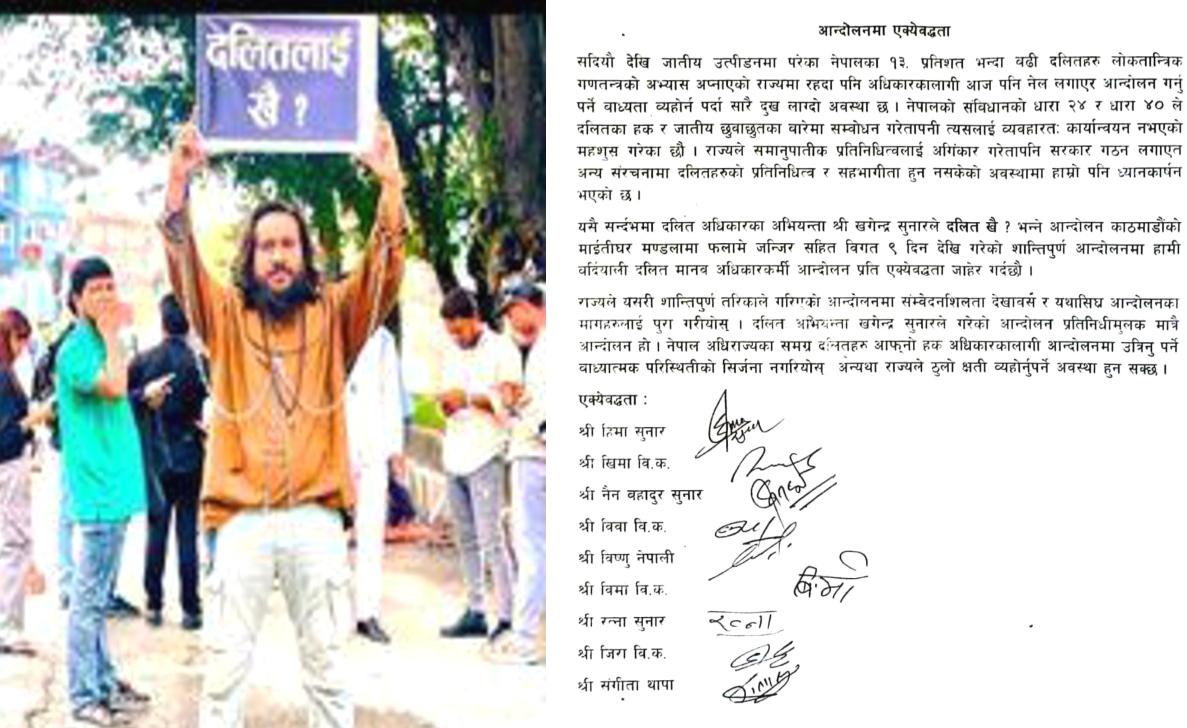 दलितलाई
खै ?
आन्दोलनमा एक्येवद्धता
सदियौ देखि जातीय उत्पीडनमा परेका नेपालका १३. प्रतिशत भन्दा वढी दलितहरु लोकतान्त्रिक
गणतन्त्रको अभ्यास अप्नाएको राज्यमा रहदा पनि अधिकारकालागी आज पनि नेल लगाएर आन्दोलन गर्नु
पर्ने वाध्यता व्यहोर्न पर्दा सारै दुख लाग्दो अवस्था छ । नेपालको संविधानको धारा २४ र धारा ४० ले
दलितका हक र जातीय छुवाछुतका वारेमा सम्वोधन गरेतापनी त्यसलाई व्यवहारत: कार्यान्वयन नभएको
महशुस गरेका छौ । राज्यले समानुपातीक प्रतिनिधित्वलाई अगिंकार गरेतापनि सरकार गठन लगाएत
अन्य संरचनामा दलितहरुको प्रतिनिधित्व र सहभागीता हुन नसकेको अवस्थामा हाम्रो पनि ध्यानकार्षन
भएको छ ।
यसै सर्न्दभमा दलित अधिकारका अभियन्ता श्री खगेन्द्र सुनारले दलित खै ? भन्ने आन्दोलन काठमाडौंको
माईतीघर मण्डलामा फलामे जन्जिर सहित विगत ९ दिन देखि गरेको शान्तिपुर्ण आन्दोलनमा हामी
वर्दियाली दलित मानव अधिकारकर्मी आन्दोलन प्रति एक्येवद्धता जाहेर गर्दछौ ।
राज्यले यसरी शान्तिपुर्ण तरिकाले गरिएको आन्दोलनमा संम्वेदनशिलता देखावस र यथासिघ्र आन्दोलनका
मागहरुलाई पुरा गरीयोस् । दलित अभियन्ता खगेन्द्र सुनारले गरेको आन्दोलन प्रतिनिधीमुलक मात्रै
आन्दोलन हो । नेपाल अधिराज्यका समग्र दलितहरु आफ्नो हक अधिकारकालागी आन्दोलनमा उत्रिनु पर्ने
वाध्यात्मक परिस्थितीको सिर्जना नगरियोस् अन्यथा राज्यले ठुलो क्षती व्यहोर्नुपर्ने अवस्था हुन सक्छ ।
एक्येवद्धता :
श्री हिमा सुनार
श्री खिमा वि.क.
श्री नैन वहादुर सुनार
श्री विवा वि.क.
श्री विष्णु नेपाली
श्री विमा वि.क. बि.मा
श्री रत्ना सुनार रत्ना
श्री जिरा वि.क.
श्री संगीता थापा